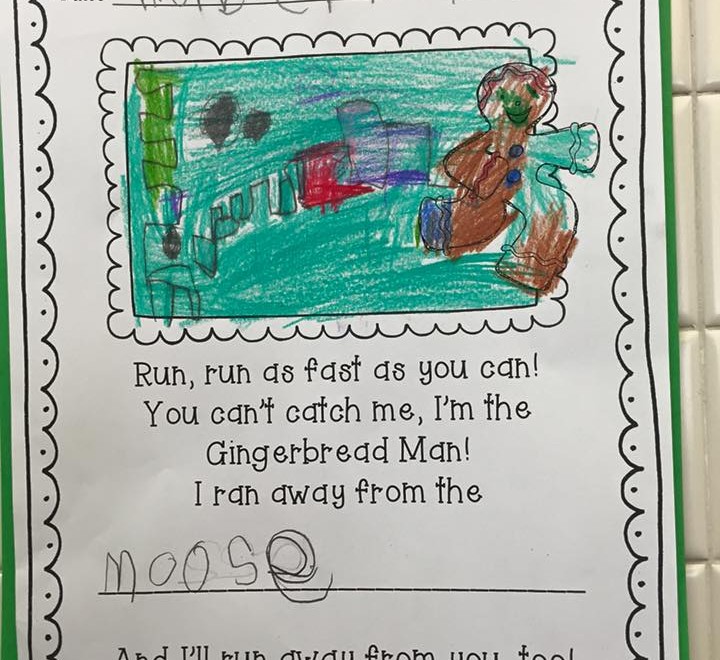 Run, run as fast as you can!
You can't catch me, I'm the
Gingerbread Man!
I ran away from the
MOOSe
And I'll run away from you, too!